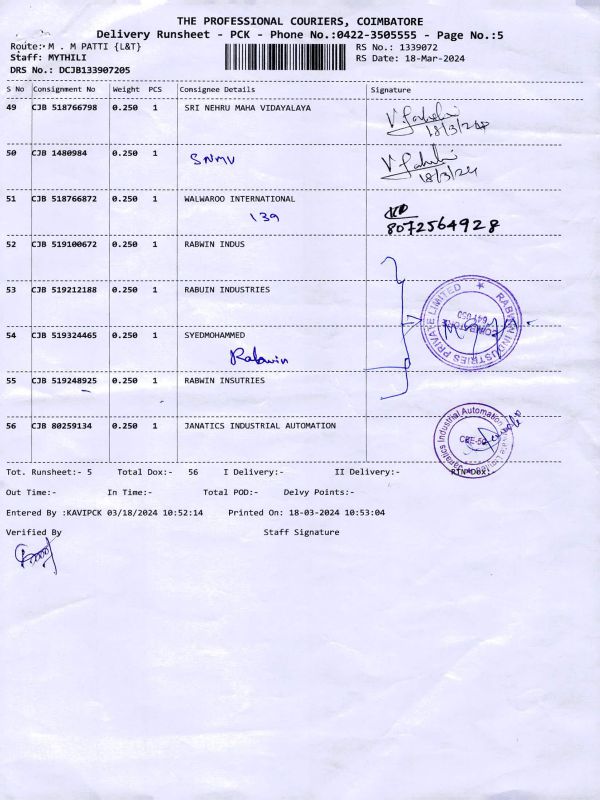 THE PROFESSIONAL COURIERS, COIMBATORE
Delivery Runsheet - PCK - Phone No.:0422-3505555 - Page No.:5
Route:- M . M PATTI {L&T}
RS No.: 1339072
Staff: MYTHILI
RS Date: 18-Mar-2024
DRS No.: DCJB133907205
S No Consignment No Weight PCS Consignee Details Signature
49 CJB 518766798 0.250 1 SRI NEHRU MAHA VIDAYALAYA
18/3/24
50 CJB 1480984 0.250 1 SNMV
18/3/24
51 CJB 518766872 0.250 1 WALWAROO INTERNATIONAL
139
8072564928
52 CJB 519100672 0.250 1 RABWIN INDUS
53 CJB 519212188 0.250 1 RABUIN INDUSTRIES
RABWIN INDUSTRIES PRIVATE LIMITED
54 CJB 519324465 0.250 1 SYEDMOHAMMED
Rabwin
55 CJB 519248925 0.250 1 RABWIN INSUTRIES
56 CJB 80259134 0.250 1 JANATICS INDUSTRIAL AUTOMATION
Janatics Industrial Automation Private Limited
Tot. Runsheet:- 5 Total Dox:- 56 I Delivery:- II Delivery:- RTN Dox:-
Out Time:- In Time:- Total POD:- Delvy Points:-
Entered By :KAVIPCK 03/18/2024 10:52:14 Printed On: 18-03-2024 10:53:04
Verified By Staff Signature